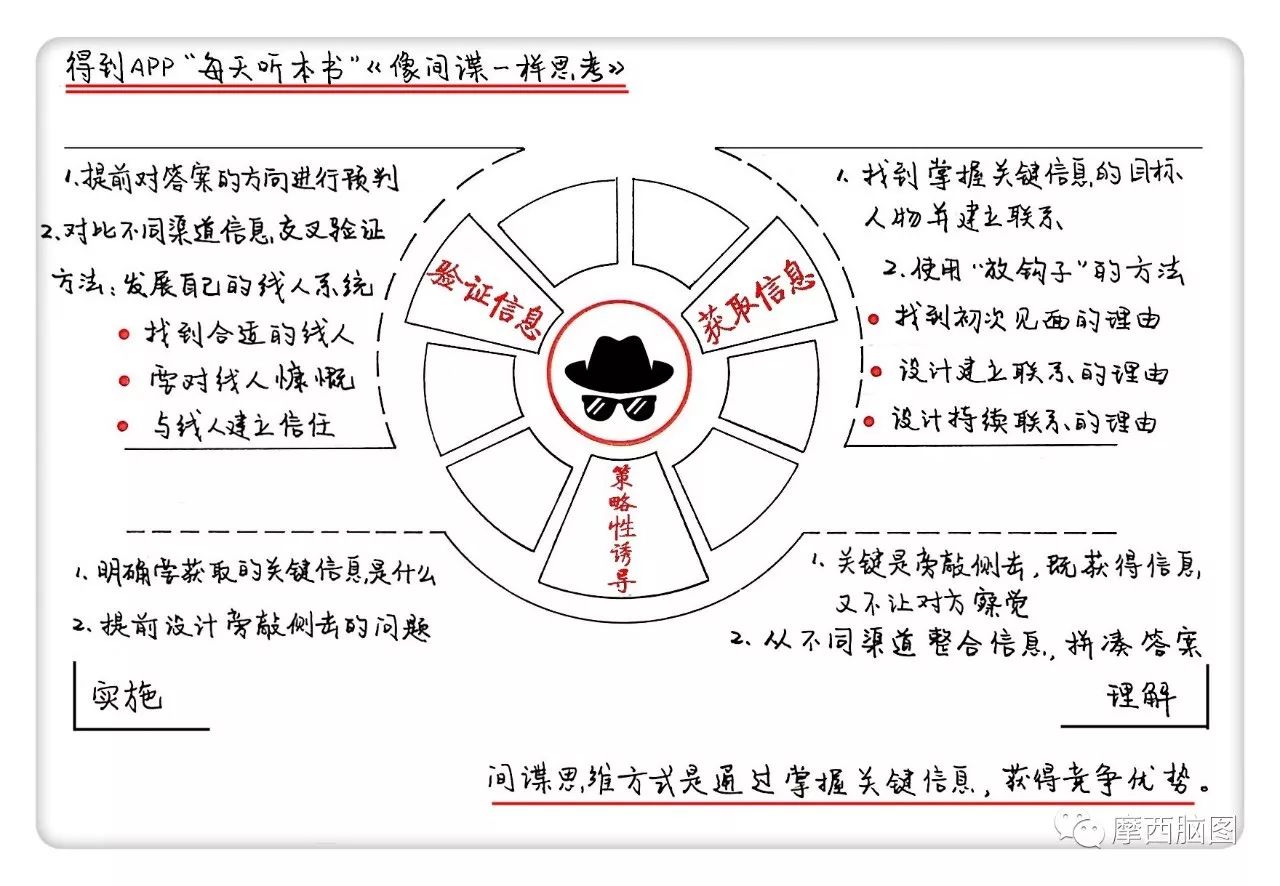 得到APP“每天听本书”《像间谍一样思考》
1.提前对答案的方向进行预判
2.对比不同渠道信息,交叉验证
方法:发展自己的线人系统
找到合适的线人
要对线人慷慨
与线人建立信任
验证信息
获取信息
策略性诱导
1. 找到掌握关键信息的目标
人物并建立联系
2.使用“放钩子”的方法
找到初次见面的理由
设计建立联系的理由
设计持续联系的理由
1.明确要获取的关键信息是什么
2.提前设计旁敲侧击的问题
实施
1.关键是旁敲侧击,既获得信息,
又不让对方察觉
2.从不同渠道整合信息,拼凑答案
理解
间谍思维方式是通过掌握关键信息,获得竞争优势。
摩西脑图